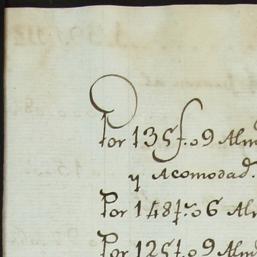 Por 135f.o9 Alm
y Acomodad.
Por 148f.o6 Al
Por 125f.o9 Alm